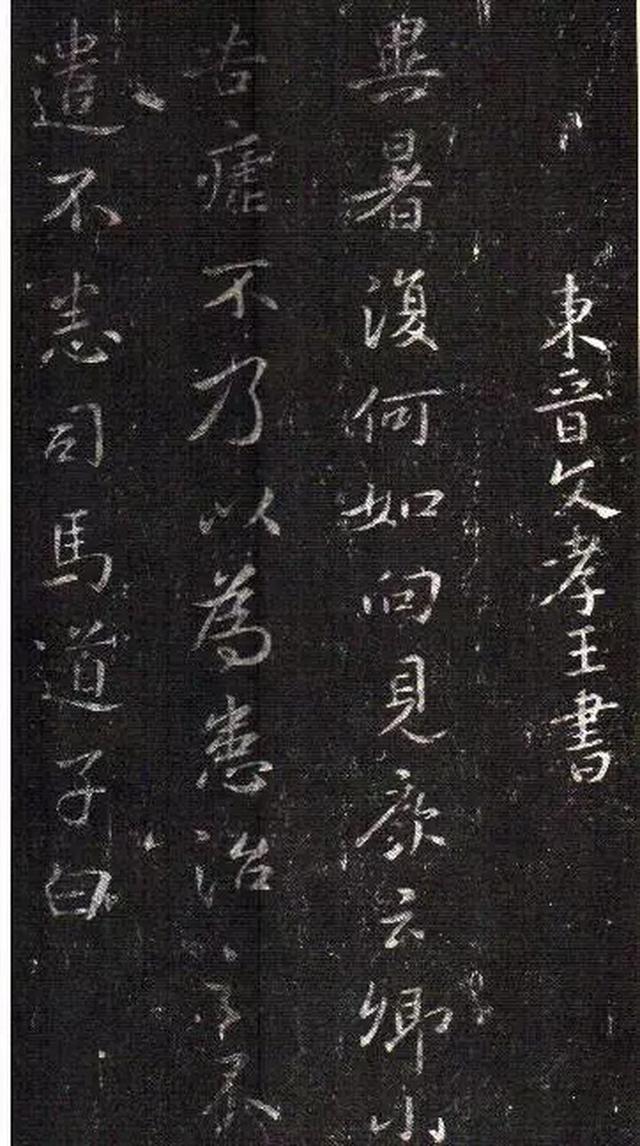 東晉文孝王書
異暑復何如向見云卿小
苦瘧不乃以為患治
遣不悉司馬道子白